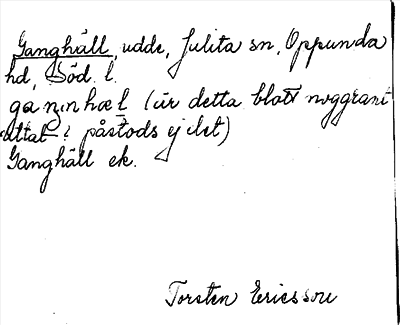 Ganghäll, udde, Julita sn, Oppunda
hd, Söd. l.
(är detta blott noggrant
uttal? påstods ej det)
Ganghäll ek.
Torsten Ericsson